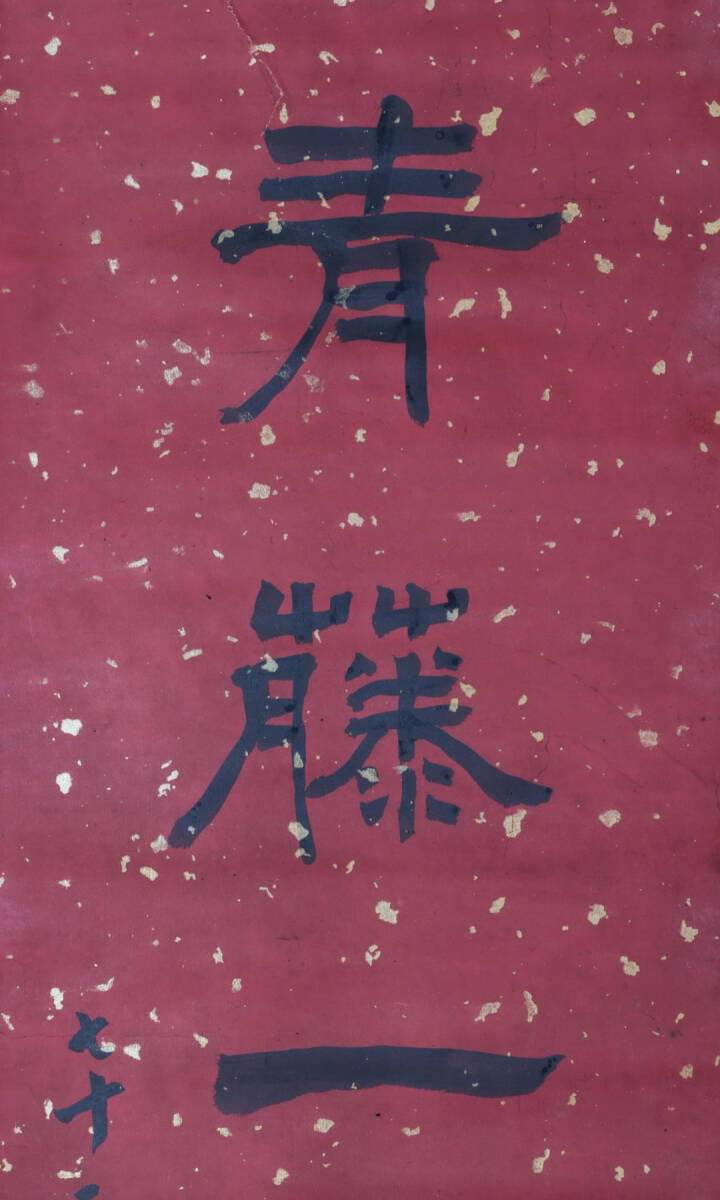 青藤一
七十